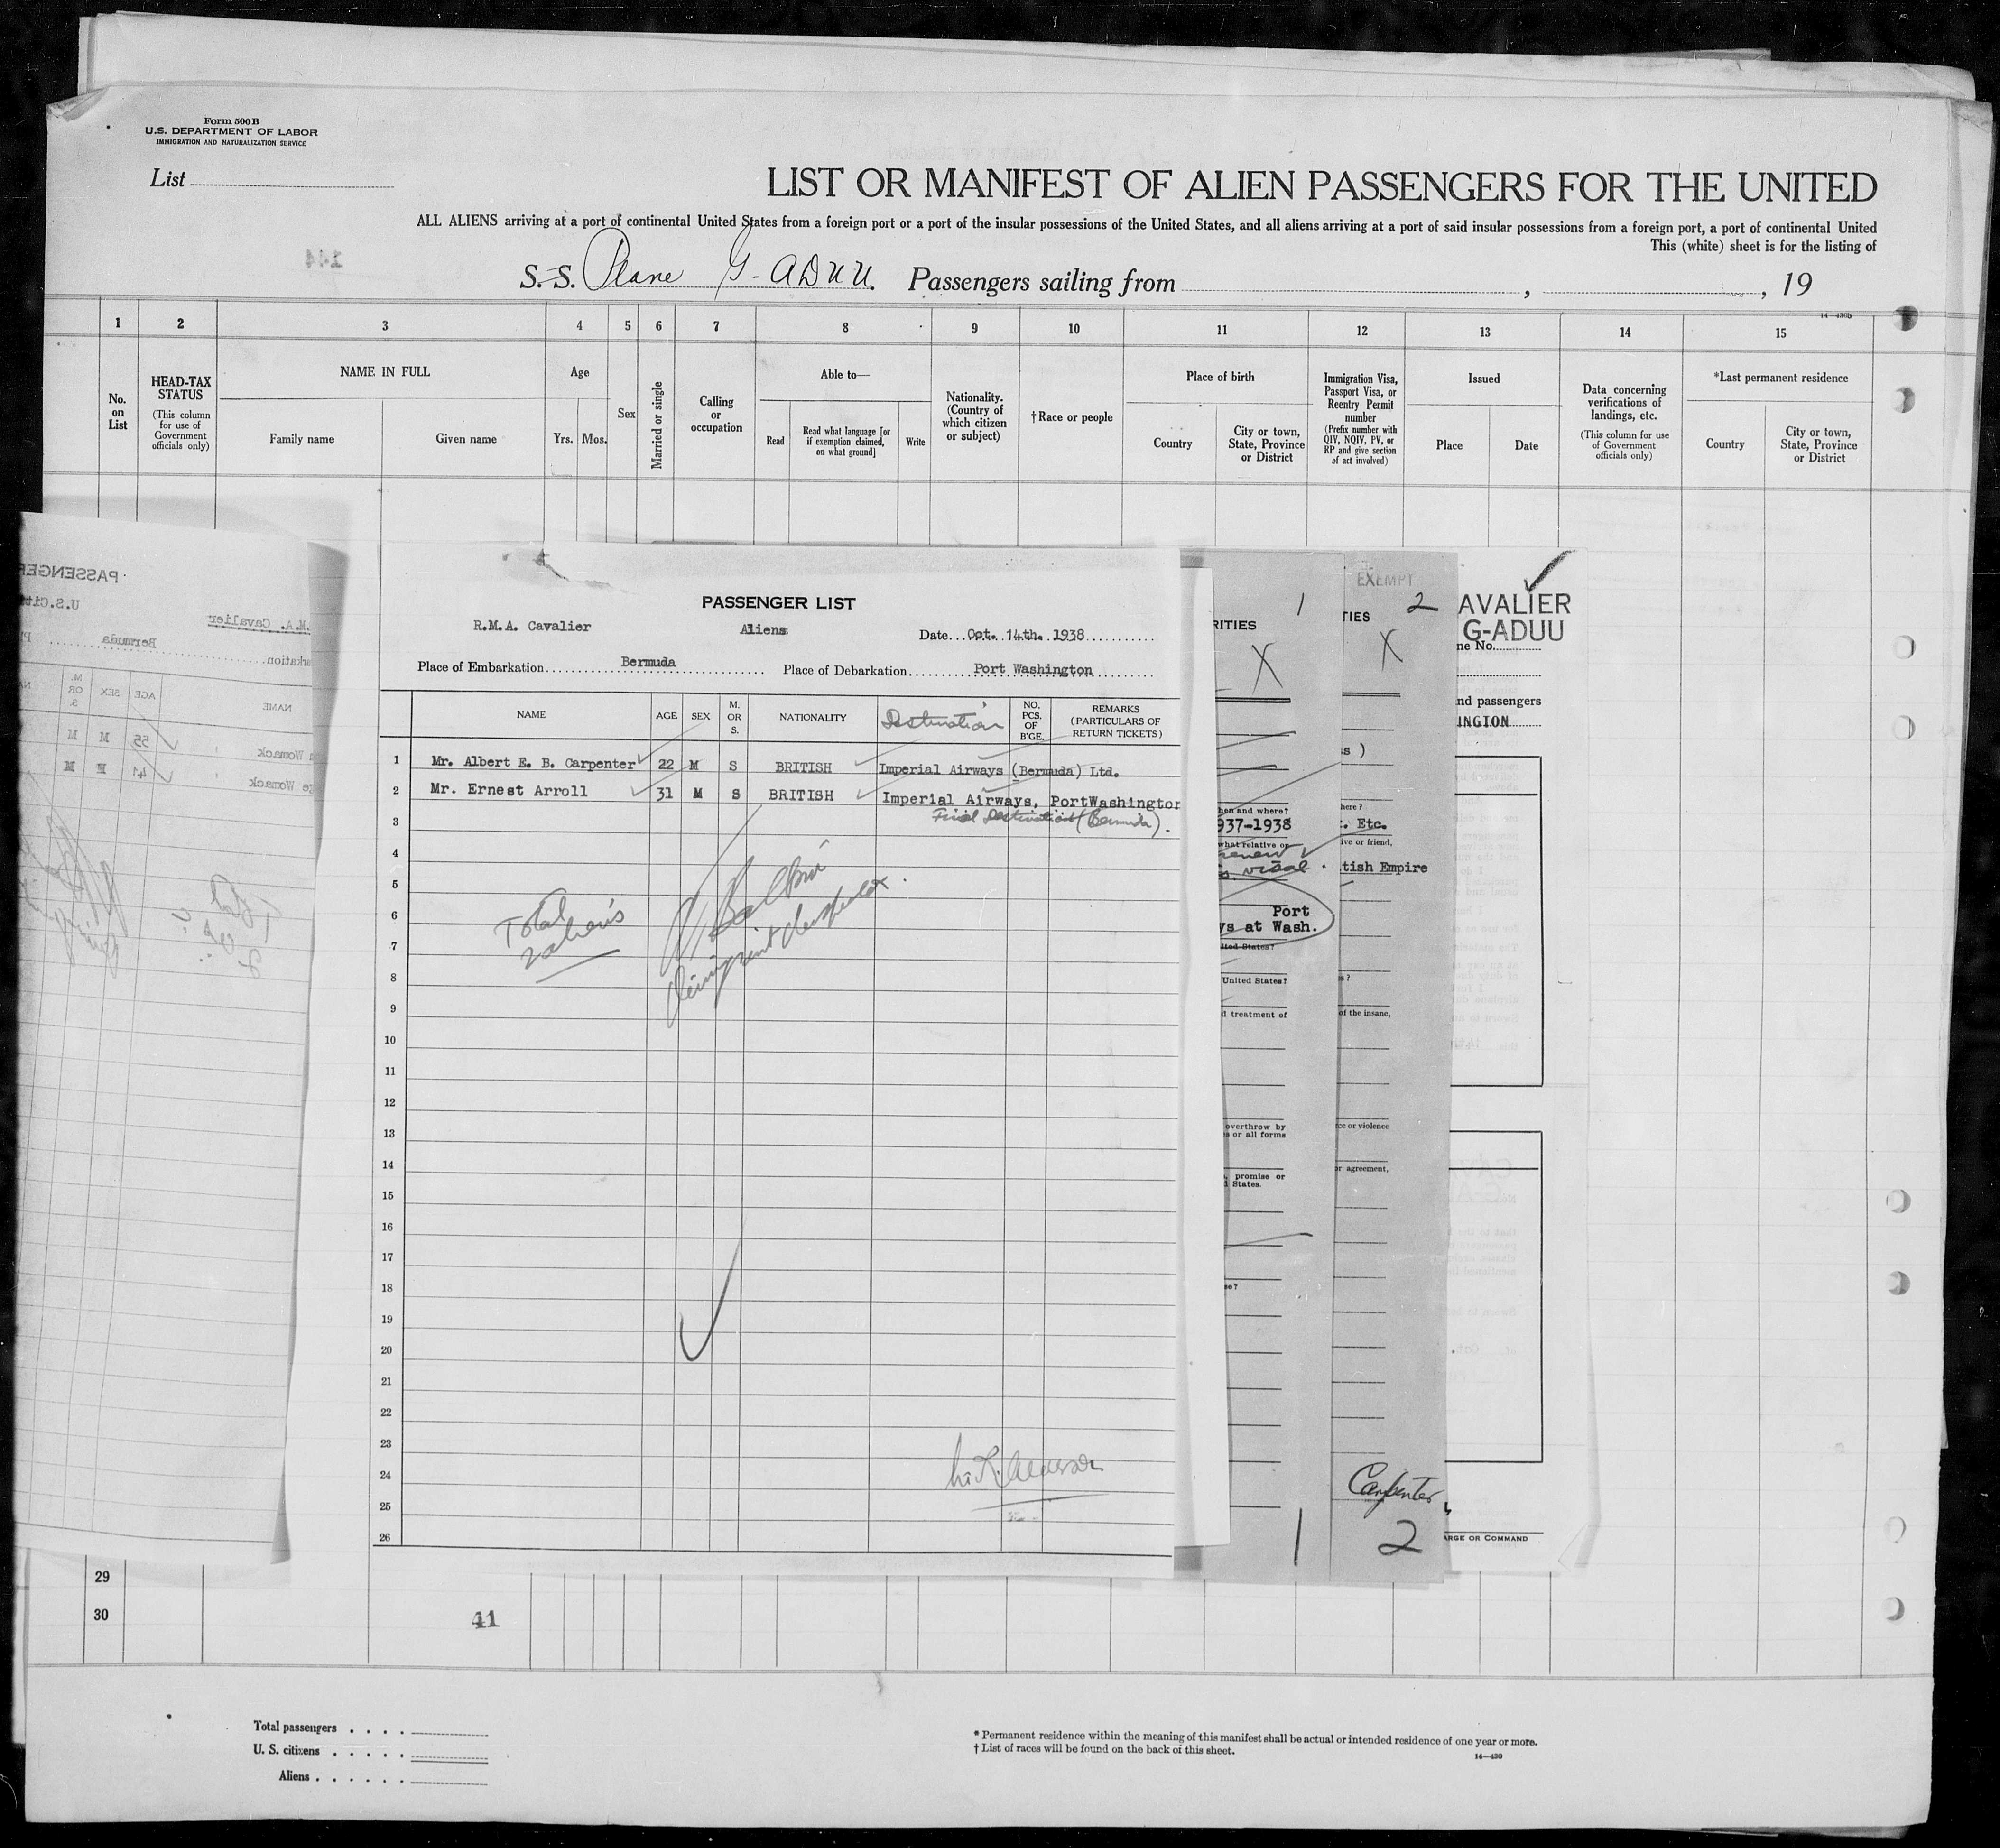 Form 500B
U.S. DEPARTMENT OF LABOR
IMMIGRATION AND NATURALIZATION SERVICE
List
LIST OR MANIFEST OF ALIEN PASSENGERS FOR THE UNITED
ALL ALIENS arriving at a port of continental United States from a foreign port or a port of the insular possessions of the United States, and all aliens arriving at a port of said insular possessions from a foreign port, a port of continental United
This (white) sheet is for the listing of
S.S. Plane G-ADUU. Passengers sailing from , , 19
1 2 3 4 5 6 7 8 9 10 11 12 13 14 15
No. on List
HEAD-TAX STATUS
(This column for use of Government officials only)
NAME IN FULL
Family name Given name
Age
Yrs. Mos.
Sex
Married or single
Calling or occupation
Able to—
Read
Read what language [or if exemption claimed, on what ground]
Write
Nationality. (Country of which citizen or subject)
†Race or people
Place of birth
Country
City or town, State, Province or District
Immigration Visa, Passport Visa, or Reentry Permit number
(Prefix number with QIV, NQIV, PV, or RP and give section of act involved)
Issued
Place Date
Data concerning verifications of landings, etc.
(This column for use of Government officials only)
*Last permanent residence
Country
City or town, State, Province or District
PASSENGER
U.S.Cit
M.A. Cavalier
Bermuda
arkation
NAME AGE SEX M. OR S.
Womack 55 M M
Womack 41 F M
Total
PASSENGER LIST
R.M.A. Cavalier Aliens Date... Oct. 14th. 1938
Place of Embarkation Bermuda Place of Debarkation Port Washington
NAME AGE SEX M. OR S. NATIONALITY Destination NO. PCS. OF B'GE. REMARKS (PARTICULARS OF RETURN TICKETS)
1 Mr. Albert E. B. Carpenter 22 M S BRITISH Imperial Airways (Bermuda) Ltd.
2 Mr. Ernest Arroll 31 M S BRITISH Imperial Airways, PortWashington
3 Final Destination (Bermuda).
4
5
6
7
8
9
10
11
12
13
14
15
16
17
18
19
20
21
22
23
24
25
26
Total
2 aliens
Immigrant Inspector
RITIES 1
X
hen and where?
937-1938
what relative or
renew
visa
Port
ys at Wash.
ited States?
United States?
d treatment of
overthrow by
s or all forms
, promise or
d States.
se?
1
EXEMPT
TIES 2
X
s )
here ?
. Etc.
ive or friend,
tish Empire
s?
of the insane,
ce or violence
or agreement,
Carpenter
2
AVALIER
G-ADUU
ne No.
nd passengers
INGTON
ARGE OR COMMAND
29
30
41
Total passengers
U. S. citizens
Aliens
* Permanent residence within the meaning of this manifest shall be actual or intended residence of one year or more.
† List of races will be found on the back of this sheet.
14—430